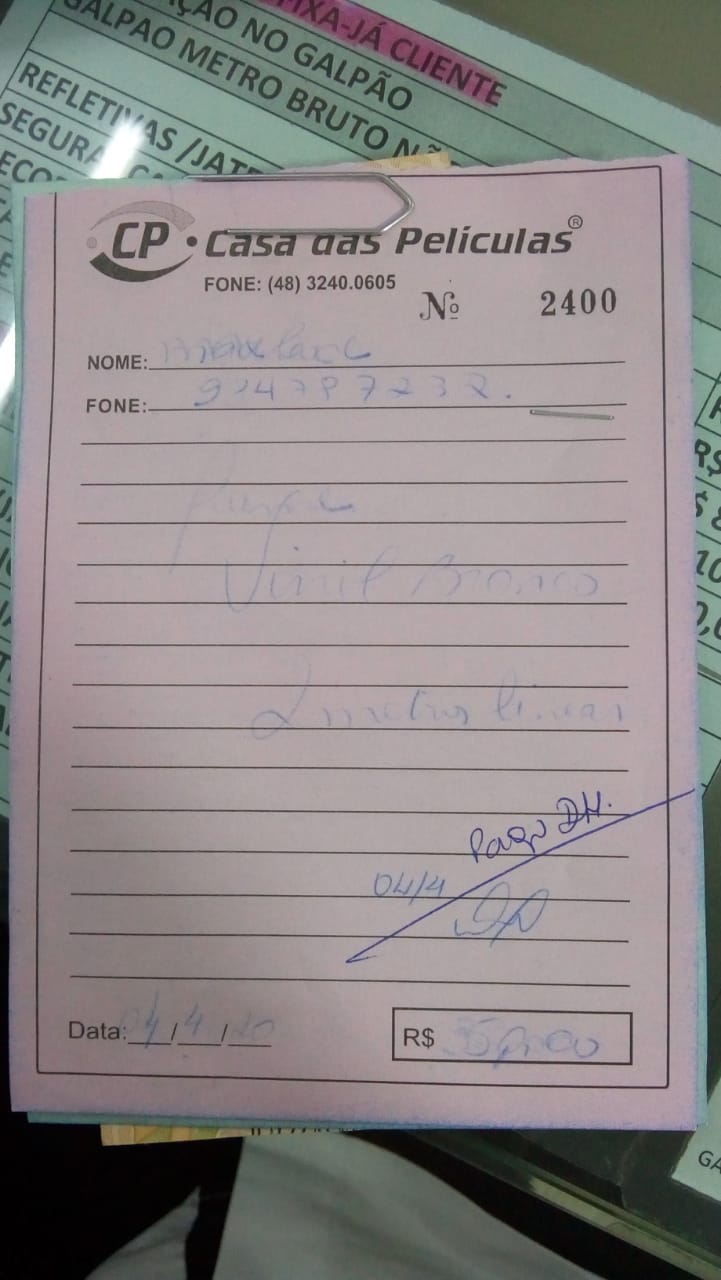 FIXA-JÁ CLIENTE
ÇÃO NO GALPÃO
GALPAO METRO BRUTO NÃ
REFLETIVAS /JATE
SEGURA
ECO
CP Casa das Películas ®
FONE: (48) 3240.0605
Nº 2400
NOME:
FONE:
Vinil Branco
2 metros linear
Pago DH.
04/4
Data: 04/4/20
R$
R$
GA